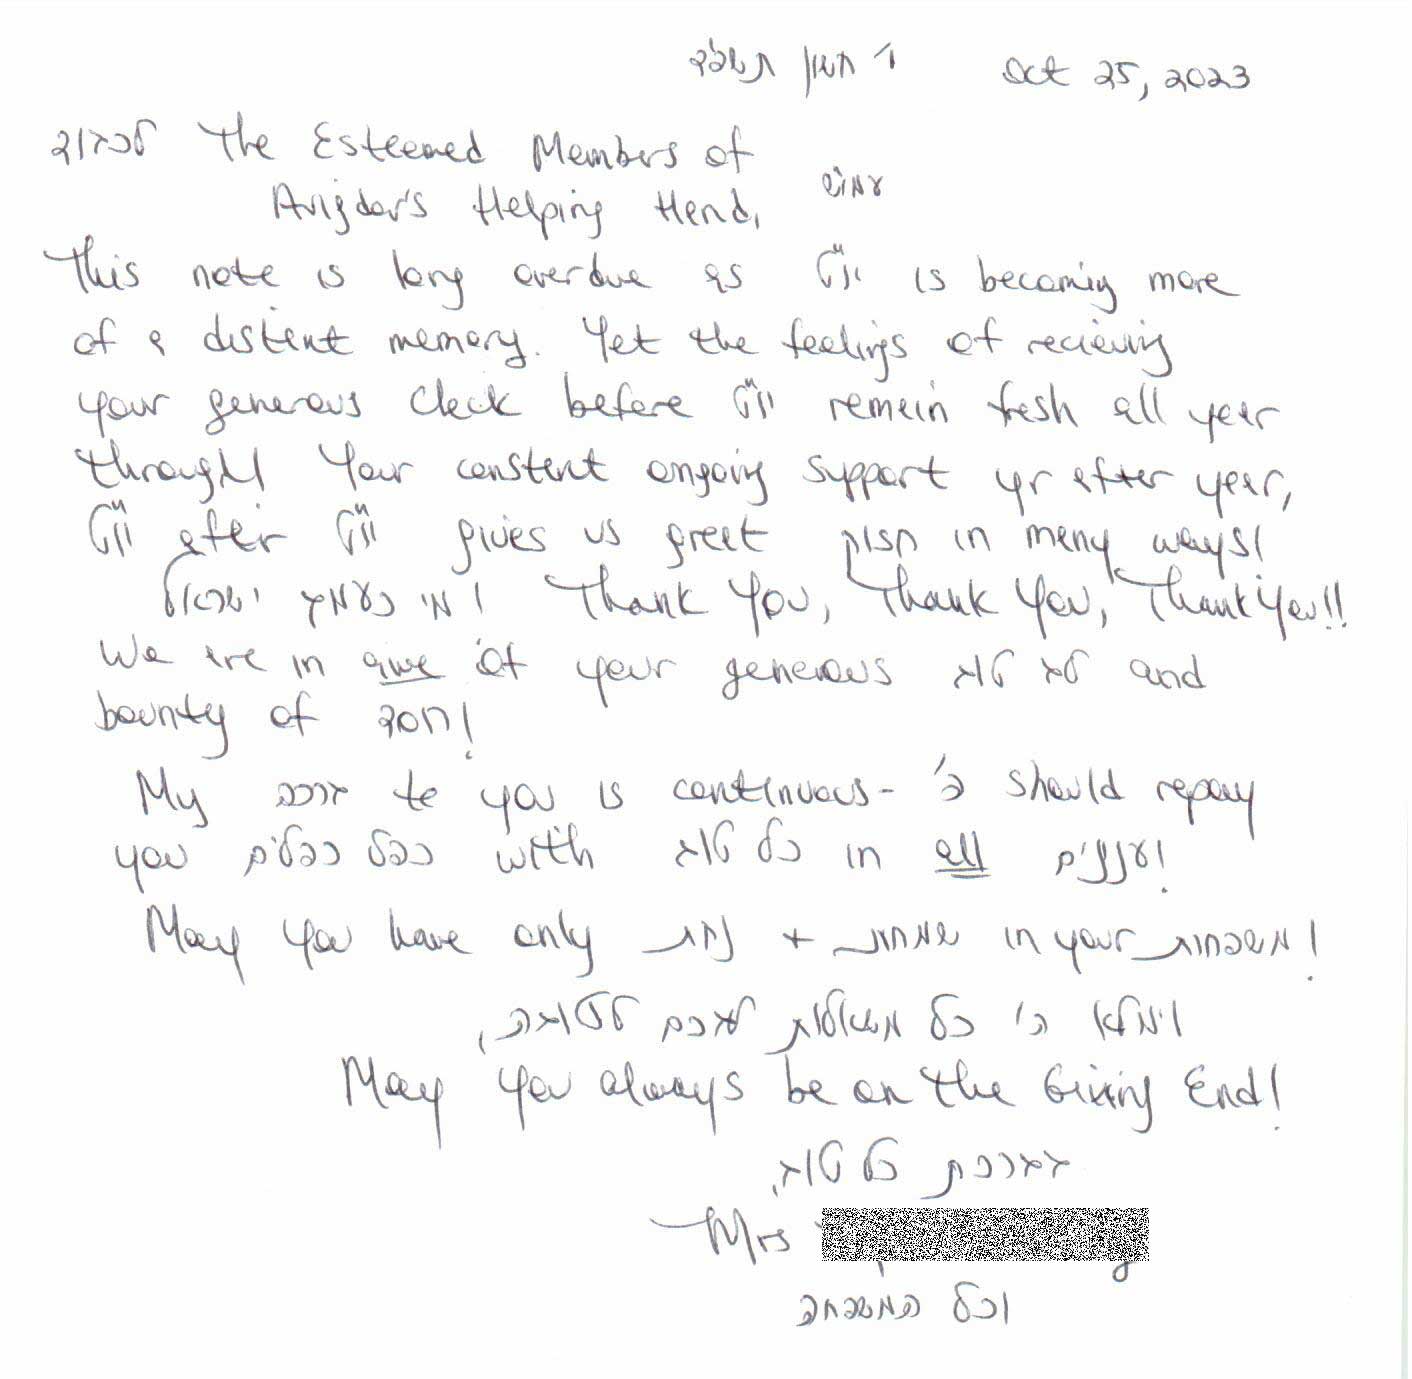 י' חשון תשפ"ד Oct 25, 2023
לכבוד The Esteemed Members of
Avigdor's Helping Hand, עמו"ש
This note is long overdue as יו"ט is becoming more
of a distant memory. Yet the feelings of recieving
your generous check before יו"ט remain fresh all year
through! Your constant ongoing support yr after year,
יו"ט after יו"ט gives us great חיזוק in many ways!
מי כעמך ישראל! Thank You, Thank You, Thank You!!
We are in awe of your generous לב טוב and
bounty of חסד!
My ברכה to you is continuous- ה' should repay
you כפל כפלים with כל טוב in all ענינים!
May you have only נחת + שמחות in your משפחות!
וימלא ה' כל משאלות לבכם לטובה,
May You always be on the Giving End!
בברכת כל טוב,
Mrs
וכל המשפחה